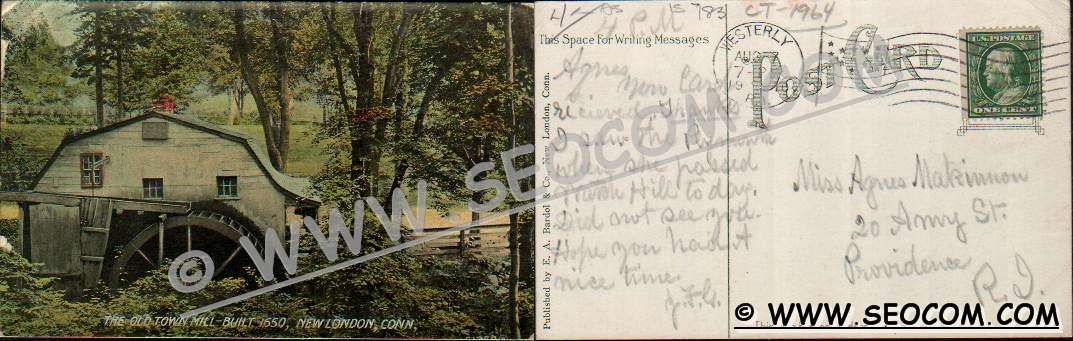 THE OLD TOWN MILL-BUILT 1650, NEW LONDON, CONN.
© WWW.SEOCOM.COM
Published by E. A. Bardol & Co., New London, Conn.
783
CT-1964
This Space For Writing Messages
Agnes
your Card
recieved Thanks
I saw the
when we passed
Hill to day.
Did not see you.
Hope you had A
nice time.
WESTERLY
AUG
7
POST CARD
U.S. POSTAGE
ONE CENT
Miss Agnes Makinnon
20 Amy St.
Providence
R.I.
© WWW.SEOCOM.COM